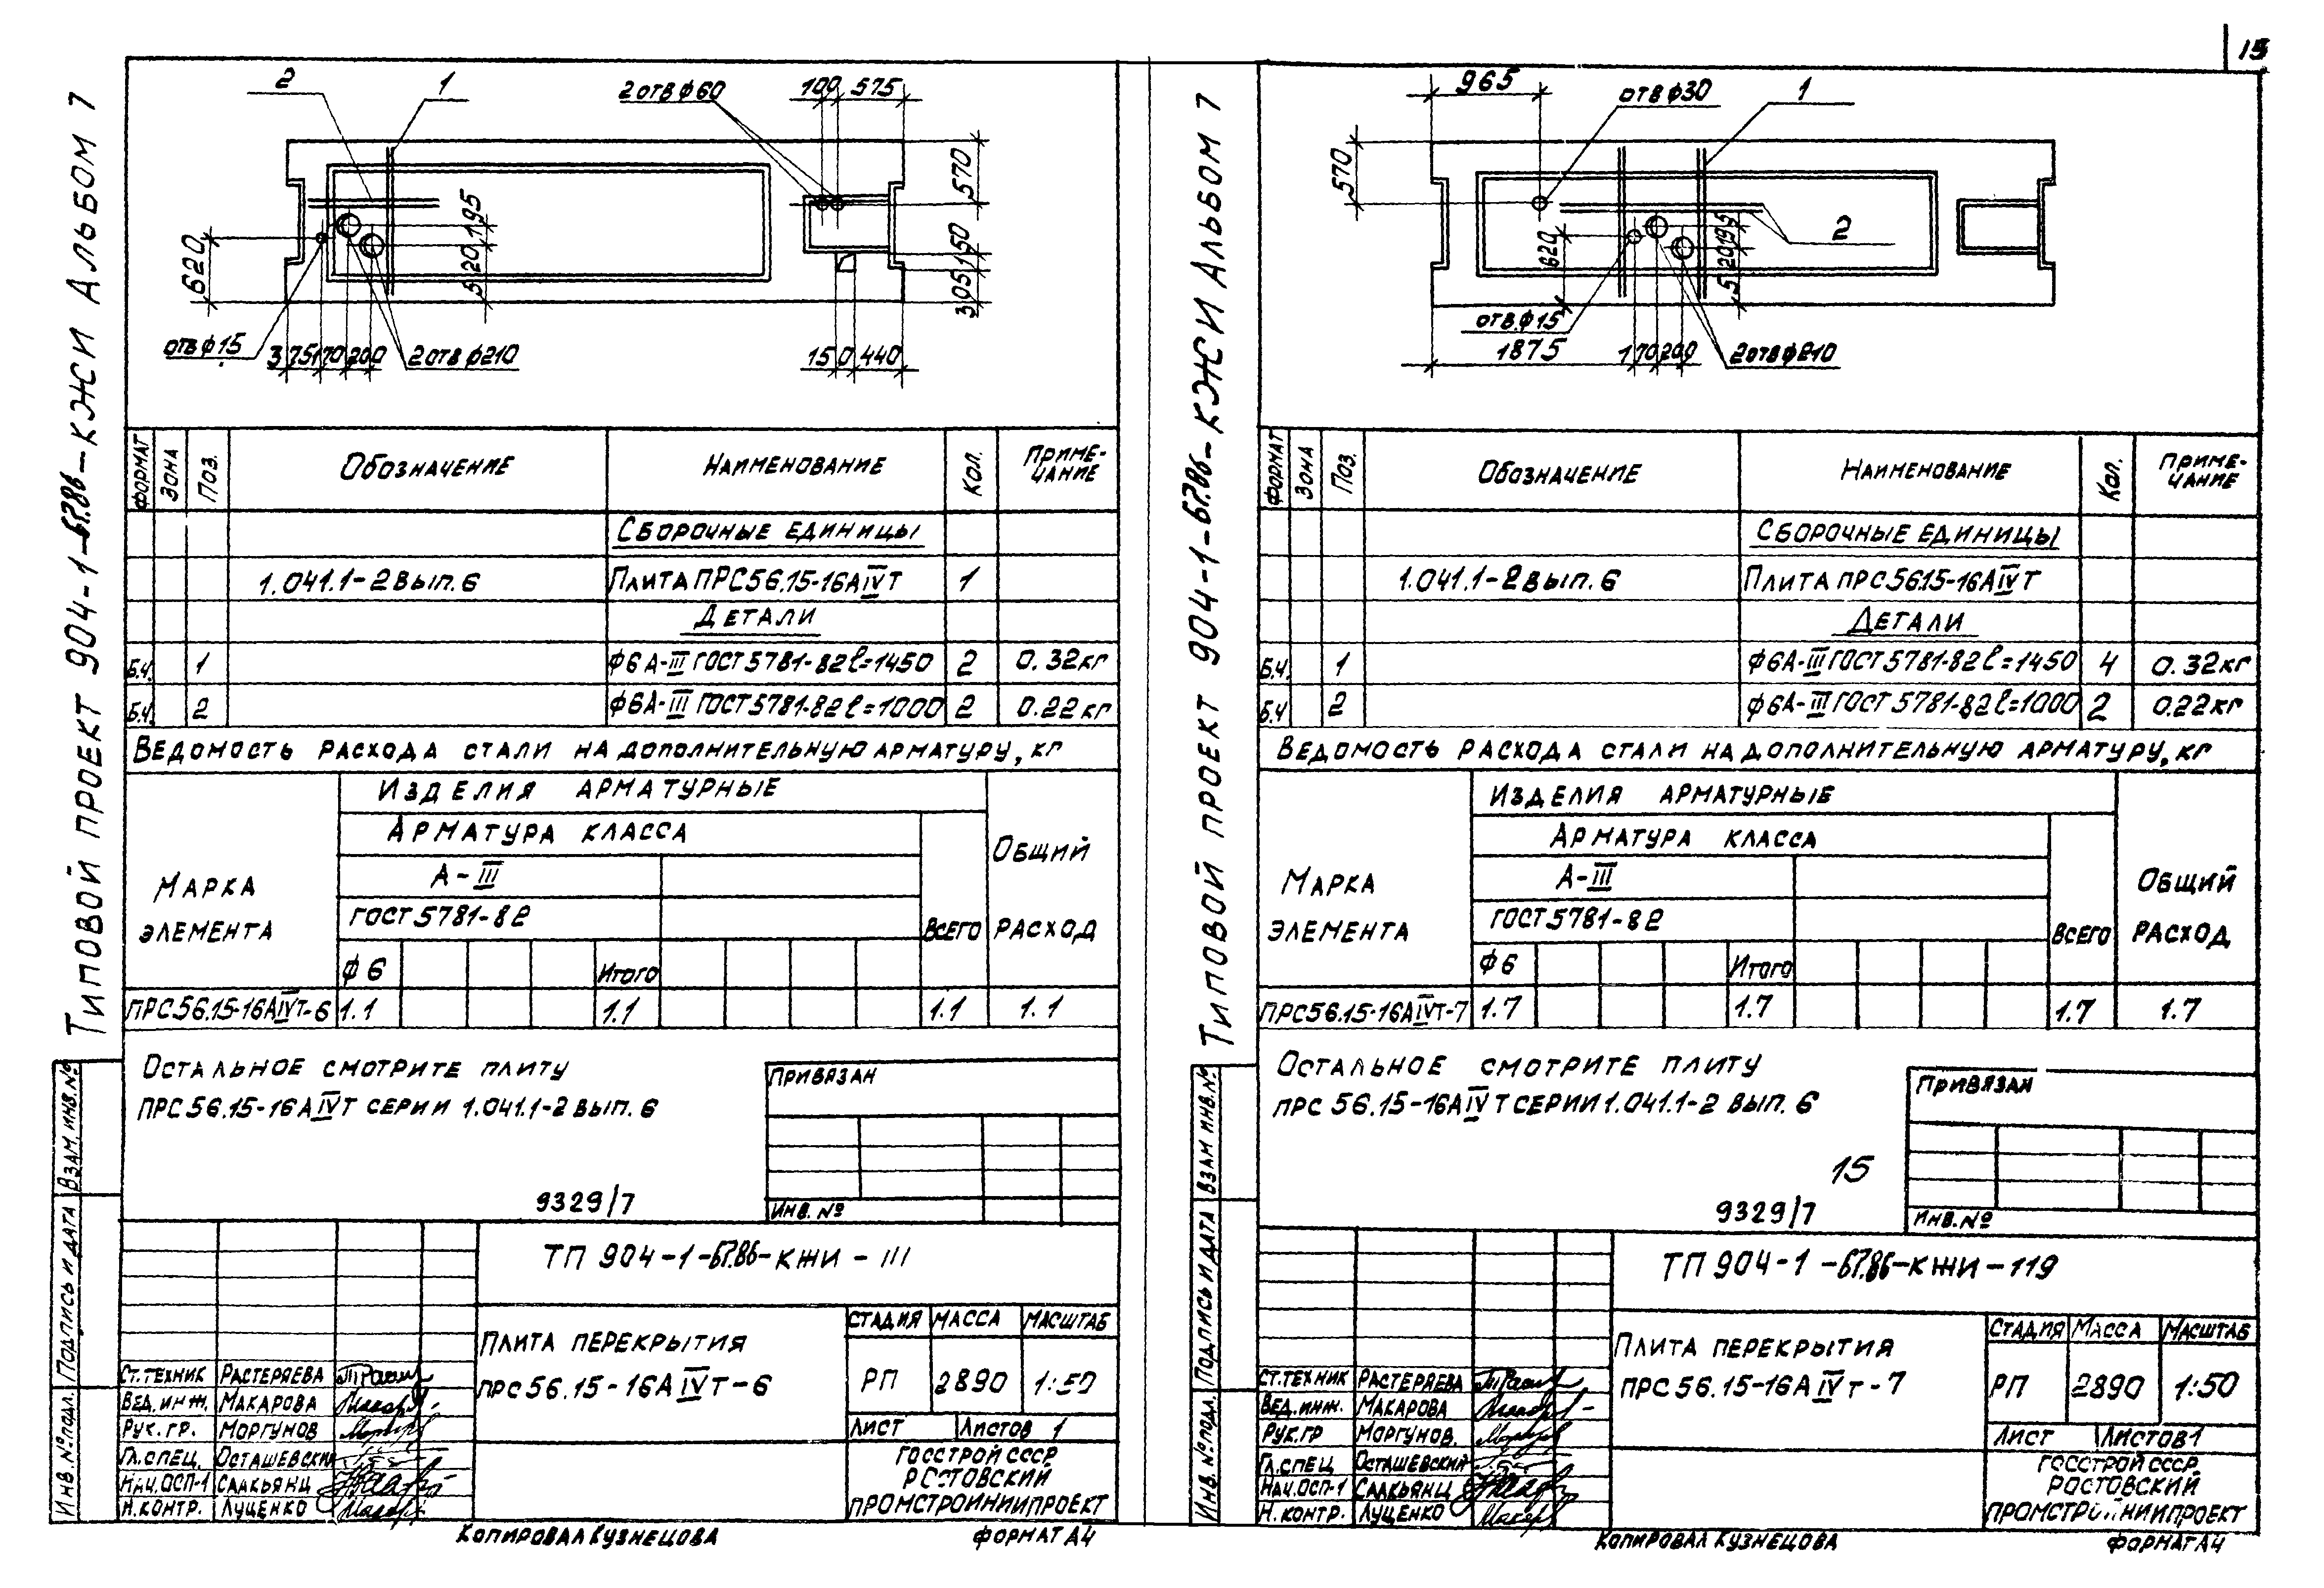 15
Типовой проект 904-1-67.86-КЖИ Альбом 7
2
1
2 отв ф60
100
575
570
150
305
195
520
620
отв ф15
375
170
200
2 отв ф210
150
440
Формат
Зона
Поз.
Обозначение
Наименование
Кол.
Приме-
чание
Сборочные единицы
1.041.1-2 вып.6 Плита ПРС56.15-16АIVТ 1
Детали
Б.ч. 1 ф6А-III ГОСТ5781-82 ℓ=1450 2 0.32кг
Б.ч. 2 ф6А-III ГОСТ5781-82 ℓ=1000 2 0.22кг
Ведомость расхода стали на дополнительную арматуру, кг
Марка
элемента
Изделия арматурные
Арматура класса
А-III
ГОСТ5781-82
ф6
Итого
Всего
Общий
расход
ПРС.56.15-16АIVТ-6 1.1 1.1 1.1 1.1
Остальное смотрите плиту
ПРС56.15-16АIVТ серии 1.041.1-2 вып. 6
Привязан
Инв. №
9329/7
ТП 904-1-67.86-КЖИ - 111
Плита перекрытия
ПРС56.15-16АIVТ-6
Стадия Масса Масштаб
РП 2890 1:50
Лист Листов 1
Госстрой СССР
Ростовский
Промстройниипроект
Ст.техник Растеряева
Вед. инж. Макарова
Рук. гр. Моргунов
Гл.спец. Осташевский
Нач.ОСП-1 Саакьянц
Н.контр. Луценко
Взам. инв. №
Подпись и дата
Инв. № подл.
Копировал Кузнецова
Формат А4
Типовой проект 904-1-67.86-КЖИ Альбом 7
965
отв ф30
1
570
2
620
195
520
отв.ф15
1875
170
200
2 отв ф210
Формат
Зона
Поз.
Обозначение
Наименование
Кол.
Приме-
чание
Сборочные единицы
1.041.1-2 вып.6 Плита ПРС56.15-16АIVТ
Детали
Б.ч. 1 ф6А-III ГОСТ5781-82 ℓ=1450 4 0.32кг
Б.ч 2 ф6А-III ГОСТ5781-82 ℓ=1000 2 0.22кг
Ведомость расхода стали на дополнительную арматуру, кг
Марка
элемента
Изделия арматурные
Арматура класса
А-III
ГОСТ5781-82
ф6
Итого
Всего
Общий
расход
ПРС56.15-16АIVТ-7 1.7 1.7 1.7 1.7
Остальное смотрите плиту
ПРС 56.15-16АIVТ серии 1.041.1-2 вып. 6
Привязан
Инв. №
15
9329/7
ТП 904-1-67.86-КЖИ-119
Плита перекрытия
ПРС56.15-16АIVТ-7
Стадия Масса Масштаб
РП 2890 1:50
Лист Листов 1
Госстрой СССР
Ростовский
Промстройниипроект
Ст.техник Растеряева
Вед.инж. Макарова
Рук.гр Моргунов.
Гл.спец Осташевский
Нач.ОСП-1 Саакьянц
Н.контр. Луценко
Взам инв. №
Подпись и дата
Инв. № подл.
Копировал Кузнецова
Формат А4